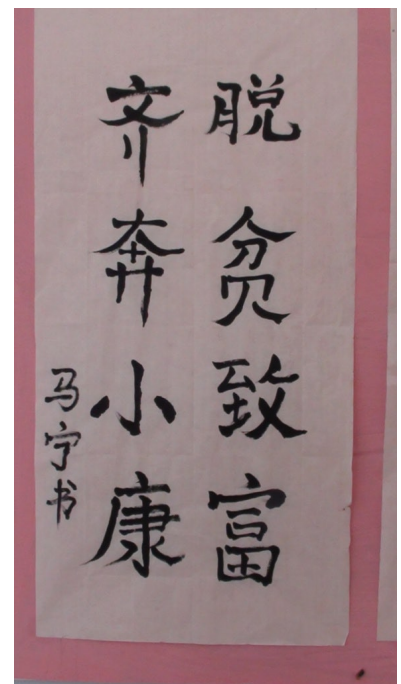 脱贫致富
齐奔小康
马宁书